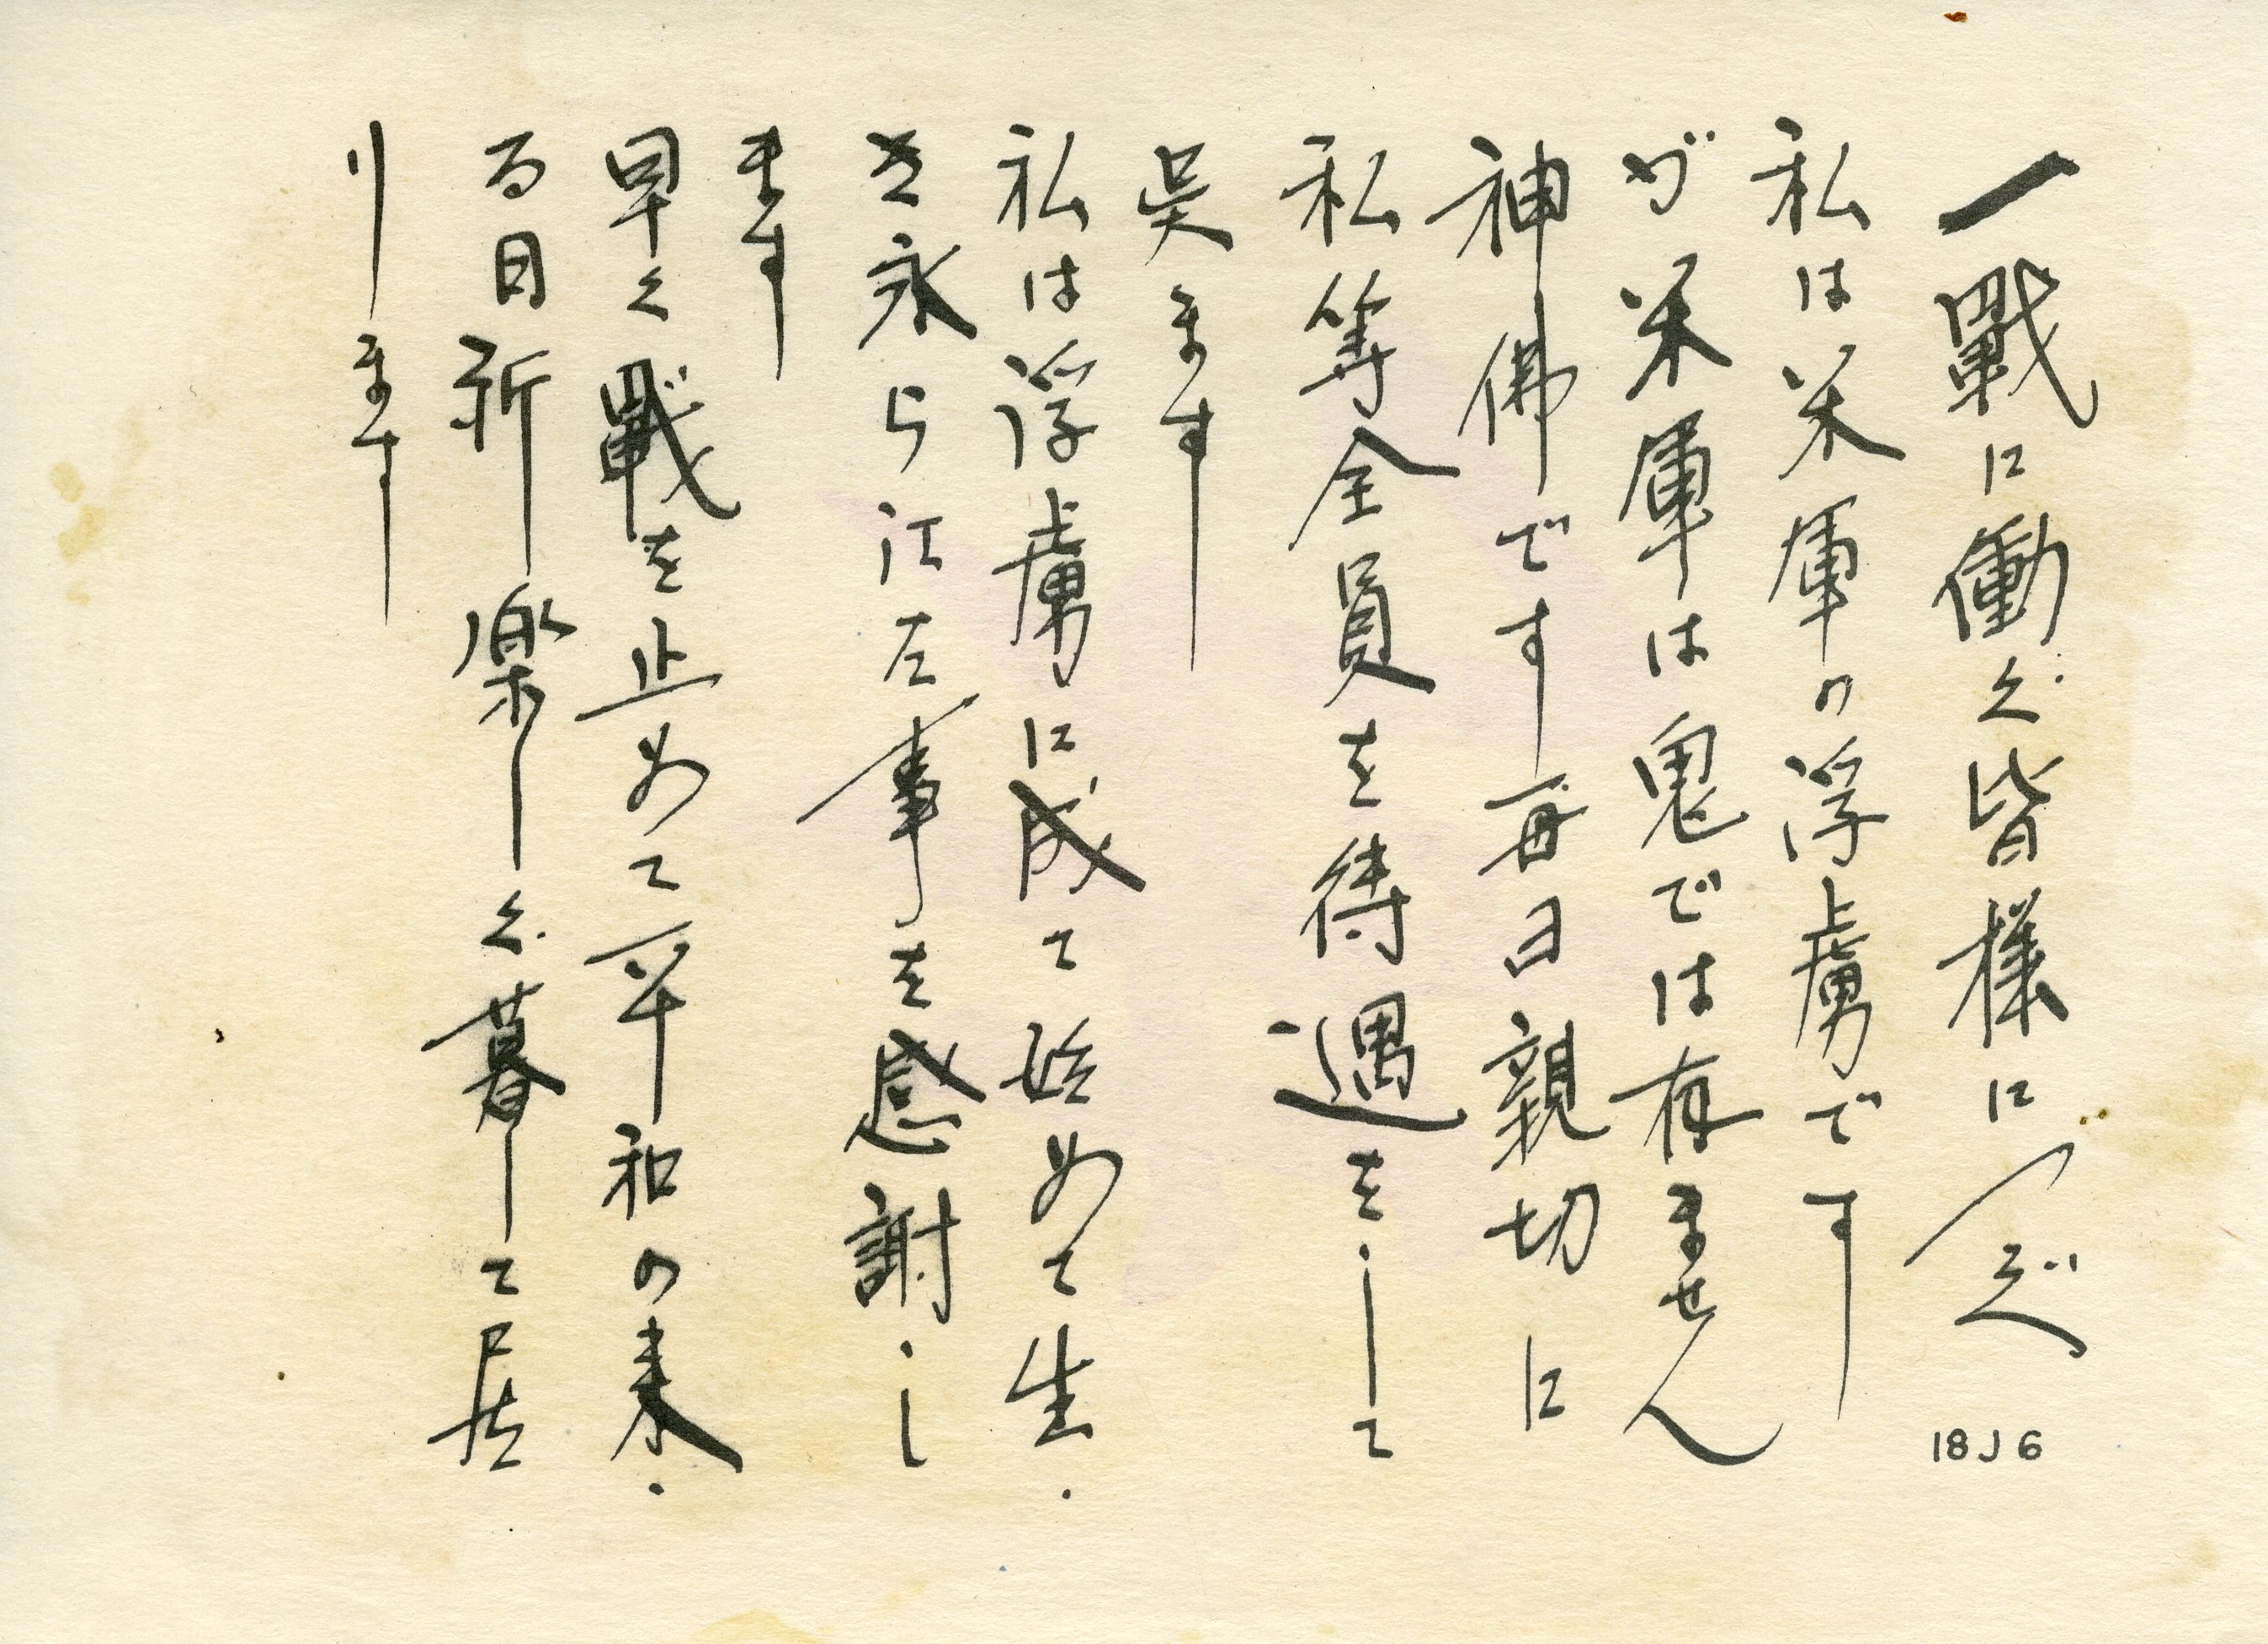 一戰に働く皆様に
18J6
私は米軍の浮虜です
が米軍は鬼では有ません
神佛です毎日親切に
私等全員を待遇をして
呉ます
私は浮虜に成て始めて生
き永らました事を感謝し
ます
早く戰を止めて平和の来
る日祈楽しく暮して居
ります